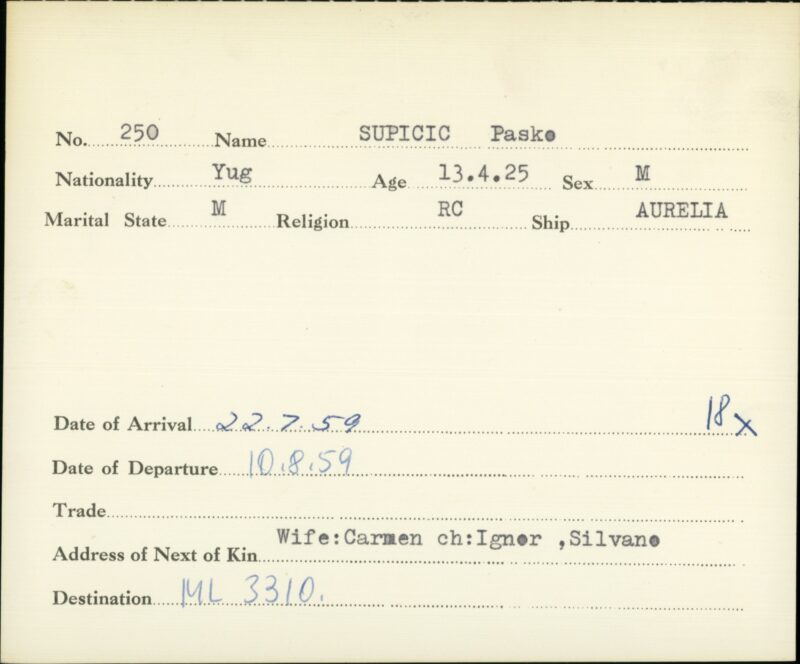 No. 250 Name SUPICIC Pasko
Nationality Yug Age 13.4.25 Sex M
Marital State M Religion RC Ship AURELIA
Date of Arrival 22.7.59 18x
Date of Departure 10.8.59
Trade
Address of Next of Kin Wife:Carmen ch:Ignor ,Silvano
Destination ML 3310.